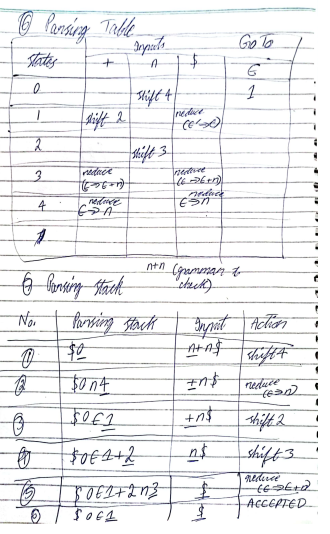 ⑥ Parsing Table
States Inputs Go To
+ n $ E
0 shift 4 1
1 shift 2 reduce (E'→E)
2 shift 3
3 reduce (E→E+n) reduce (E→E+n)
4 reduce E→n reduce E→n
n+n (grammar to check)
Parsing stack
No. Parsing stack Input Action
① $0 n+n$ shift 4
② $0n4 +n$ reduce (E→n)
③ $0E1 +n$ shift 2
④ $0E1+2 n$ shift 3
⑤ $0E1+2n3 $ reduce (E→E+n)
⑥ $0E1 $ ACCEPTED